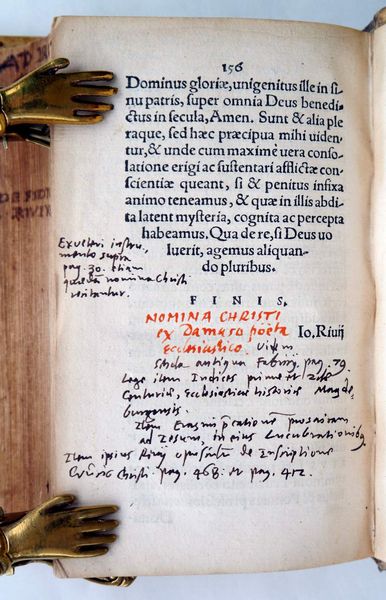 156
Dominus gloriæ, unigenitus ille in si
nu patris, super omnia Deus benedi
ctus in secula, Amen. Sunt & alia ple
raque, sed hæc præcipua mihi viden
tur, & unde cum maximè vera conso
latione erigi ac sustentari afflictæ con
scientiæ queant, si & penitus infixa
animo teneamus, & quæ in illis abdi
ta latent mysteria, cognita ac percepta
habeamus. Qua de re, si Deus vo
luerit, agemus aliquan
do pluribus.
Ex veteri instru,
mento supra
pag. 30. etiam
nomina Christi
FINIS.
NOMINA CHRISTI
ex Damaso poëta
Ecclesiastico.
Io. Rivij
antiqua Fabricij, pag. 79.
Lege item Indices primæ et 2dæ
Centuriæ, Ecclesiasticæ historiæ Magde,
burgensis.
Item Erasmi
ad Iesum, in eius Lucubrationibus
Item ipsius Rivij de Inscriptione
Christi pag. 468. et pag. 412.